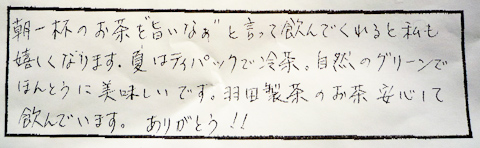 朝一杯のお茶を"旨いなぁ"と言って飲んでくれると私も
嬉しくなります。夏はティパックで冷茶。自然のグリーンで
ほんとうに美味しいです。羽田製茶のお茶 安心して
飲んでいます。 ありがとう!!